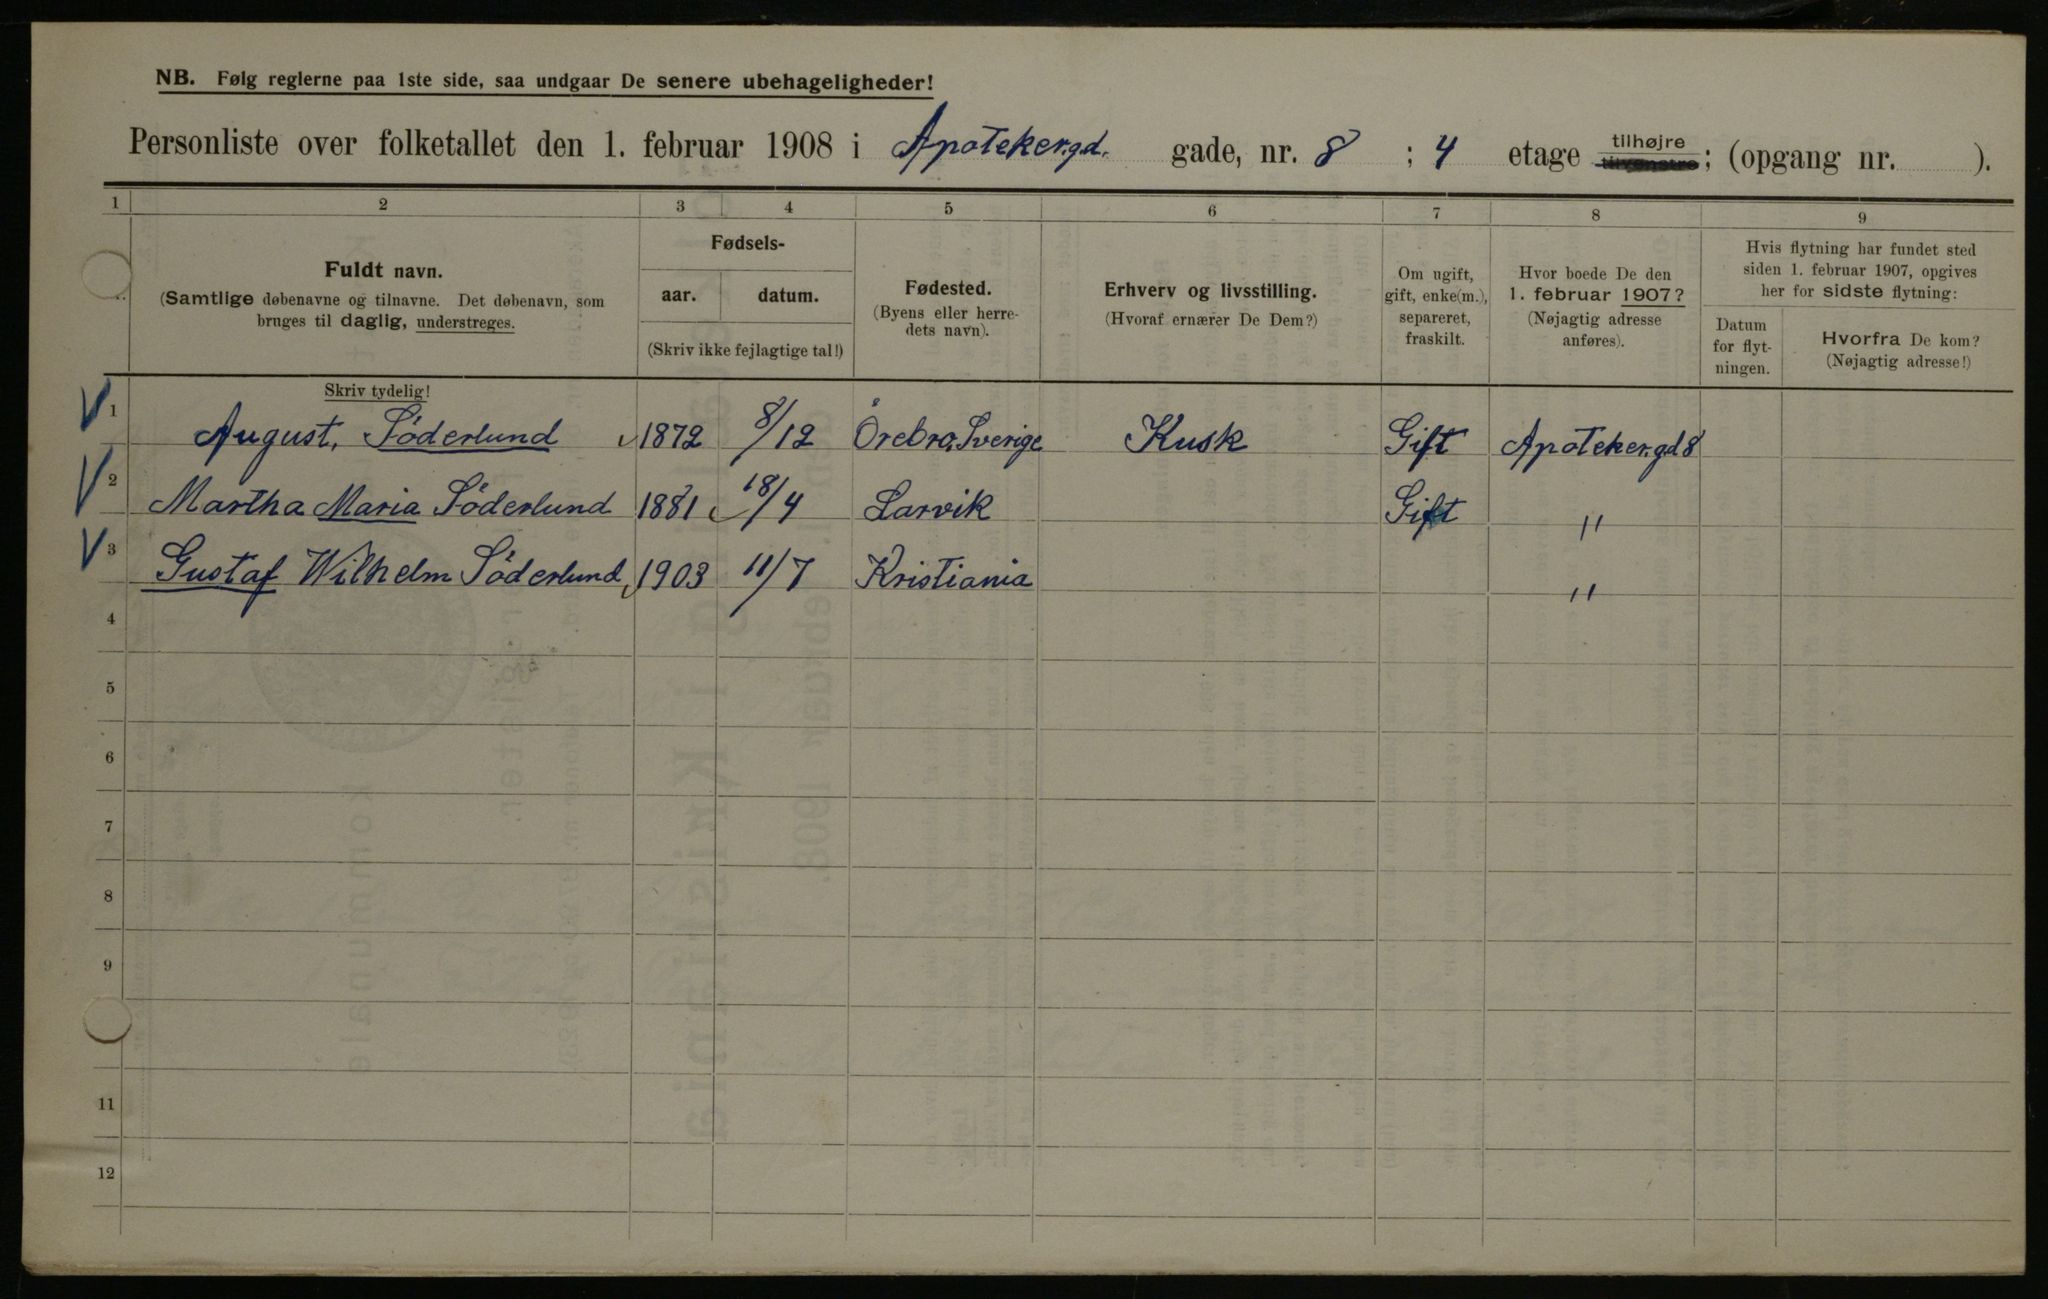 NB. Følg reglerne paa 1ste side, saa undgaar De senere ubehageligheder!
Personliste over folketallet den 1. februar 1908 i Apotekergd. gade, nr. 8 ; 4 etage tilhøjre tilvenstre; (opgang nr. ).
1 2 3 4 5 6 7 8 9
Fuldt navn.
(Samtlige døbenavne og tilnavne. Det døbenavn, som
bruges til daglig, understreges.
Skriv tydelig!
Fødsels-
aar. datum.
(Skriv ikke fejlagtige tal!)
Fødested.
(Byens eller herre-
dets navn).
Erhverv og livsstilling.
(Hvoraf ernærer De Dem?)
Om ugift,
gift, enke(m.),
separeret,
fraskilt.
Hvor boede De den
1. februar 1907?
(Nøjagtig adresse
anføres).
Hvis flytning har fundet sted
siden 1. februar 1907, opgives
her for sidste flytning:
Datum
for flyt-
ningen.
Hvorfra De kom?
(Nøjagtig adresse!)
1 August, Söderlund 1872 8/12 Örebro, Sverige Kusk Gift Apotekergd 8
2 Martha Maria Söderlund 1881 18/4 Larvik Gift "
3 Gustaf Wilhelm Söderlund, 1903 11/7 Kristiania "
4
5
6
7
8
9
11
12